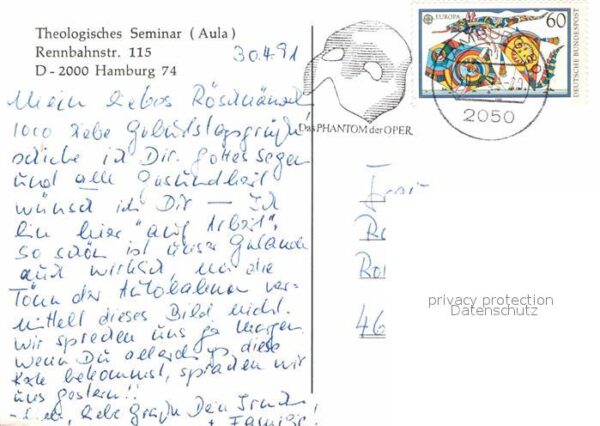 Theologisches Seminar (Aula)
Rennbahnstr. 115
D-2000 Hamburg 74
30.4.91
Mein liebes
1000 liebe Geburtstagsgrüße
schicke ich Dir. Gottes Segen
und alle Gesundheit
wünsch ich Dir – Ich
bin hier "auf Arbeit".
So schön ist unser Gelände
auch wirklich, nur die
Töne der Autobahn ver-
mittelt dieses Bild nicht.
Wir sprechen uns ja morgen
wenn Du allerdings diese
Karte bekommst, sprachen wir
uns gestern!!
liebe Grüße Dein
+ Familie!
EUROPA
60
DEUTSCHE BUNDESPOST
HAMBURG
2050
Das PHANTOM der OPER
Frau
46
privacy protection
Datenschutz